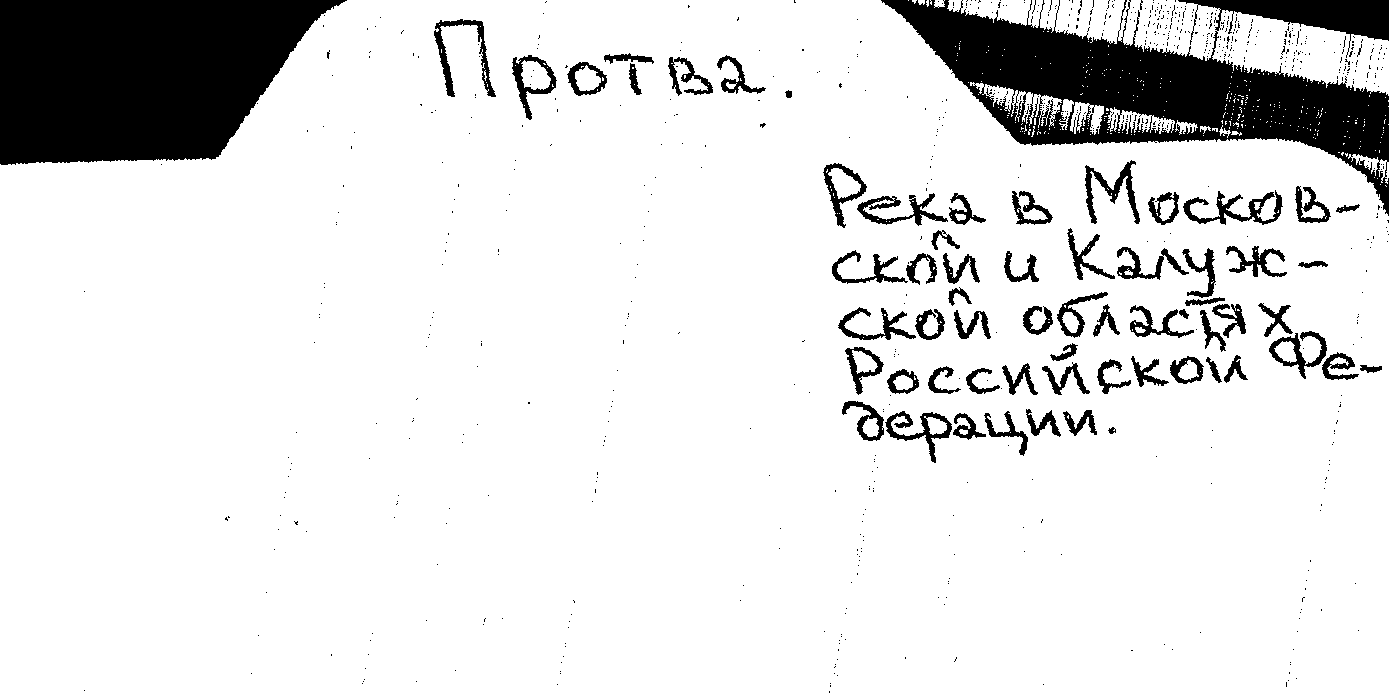 Протва.
Река в Москов-
ской и Калуж-
ской областях
Российской Фе-
дерации.